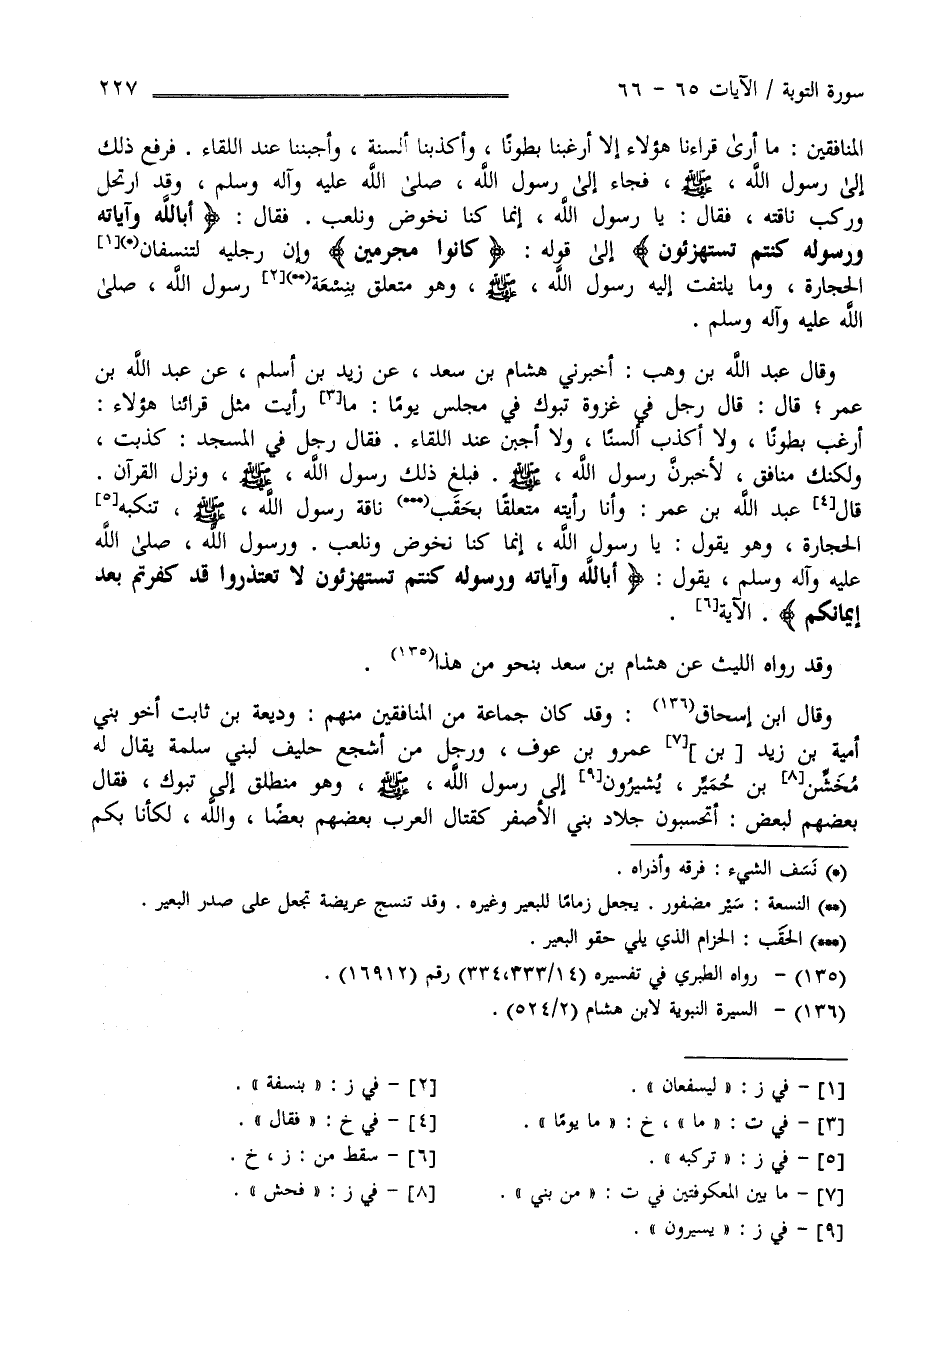 سورة التوبة / الآيات ٦٥ - ٦٦ ٢٢٧
المنافقين : ما أرىٰ قراءنا هؤلاء إلا أرغبنا بطونًا ، وأكذبنا ألسنة ، وأجبننا عند اللقاء . فرفع ذلك
إلىٰ رسول اللَّه ، ﷺ ، فجاء إلىٰ رسول اللَّه ، صلىٰ اللَّه عليه وآله وسلم ، وقد ارتحل
وركب ناقته ، فقال : يا رسول اللَّه ، إنما كنا نخوض ونلعب . فقال : ﴿ أباللَّه وآياته
ورسوله كنتم تستهزئون ﴾ إلىٰ قوله : ﴿ كانوا مجرمين ﴾ وإن رجليه لتنسفان(*)[١]
الحجارة ، وما يلتفت إليه رسول اللَّه ، ﷺ ، وهو متعلق بنِسْعَة(**)[٢] رسول اللَّه ، صلىٰ
اللَّه عليه وآله وسلم .
وقال عبد اللَّه بن وهب : أخبرني هشام بن سعد ، عن زيد بن أسلم ، عن عبد اللَّه بن
عمر ؛ قال : قال رجل في غزوة تبوك في مجلس يومًا : ما[٣] رأيت مثل قرائنا هؤلاء :
أرغب بطونًا ، ولا أكذب ألسنًا ، ولا أجبن عند اللقاء . فقال رجل في المسجد : كذبت ،
ولكنك منافق ، لأخبرنَّ رسول اللَّه ، ﷺ . فبلغ ذلك رسول اللَّه ، ﷺ ، ونزل القرآن .
قال[٤] عبد اللَّه بن عمر : وأنا رأيته متعلقًا بحَقَب(***) ناقة رسول اللَّه ، ﷺ ، تنكبه[٥]
الحجارة ، وهو يقول : يا رسول اللَّه ، إنما كنا نخوض ونلعب . ورسول اللَّه ، صلىٰ اللَّه
عليه وآله وسلم ، يقول : ﴿ أباللَّه وآياته ورسوله كنتم تستهزئون لا تعتذروا قد كفرتم بعد
إيمانكم ﴾ . الآية[٦] .
وقد رواه الليث عن هشام بن سعد بنحو من هذا(١٣٥) .
وقال ابن إسحاق(١٣٦) : وقد كان جماعة من المنافقين منهم : وديعة بن ثابت أخو بني
أمية بن زيد [ بن ][٧] عمرو بن عوف ، ورجل من أشجع حليف لبني سلمة يقال له
مُخَشِّن[٨] بن حُمَيِّر ، يُشيرُون[٩] إلى رسول اللَّه ، ﷺ ، وهو منطلق إلى تبوك ، فقال
بعضهم لبعض : أتحسبون جلاد بني الأصفر كقتال العرب بعضهم بعضًا ، واللَّه ، لكأنا بكم
(*) نَسَف الشيء : فرقه وأذراه .
(**) النسعة : سَيْر مضفور . يجعل زمامًا للبعير وغيره . وقد تنسج عريضة تجعل على صدر البعير .
(***) الحَقَب : الحزام الذي يلي حقو البعير .
(١٣٥) - رواه الطبري في تفسيره (٣٣٤،٣٣٣/١٤) رقم (١٦٩١٢) .
(١٣٦) - السيرة النبوية لابن هشام (٥٢٤/٢) .
[١] - في ز : « ليسفعان » . [٢] - في ز : « بنسفة » .
[٣] - في ت : « ما » ، خ : « ما يومًا » . [٤] - في خ : « فقال » .
[٥] - في ز : « تركبه » . [٦] - سقط من : ز ، خ .
[٧] - ما بين المعكوفتين في ت : « من بني » . [٨] - في ز : « فحش » .
[٩] - في ز : « يسيرون » .